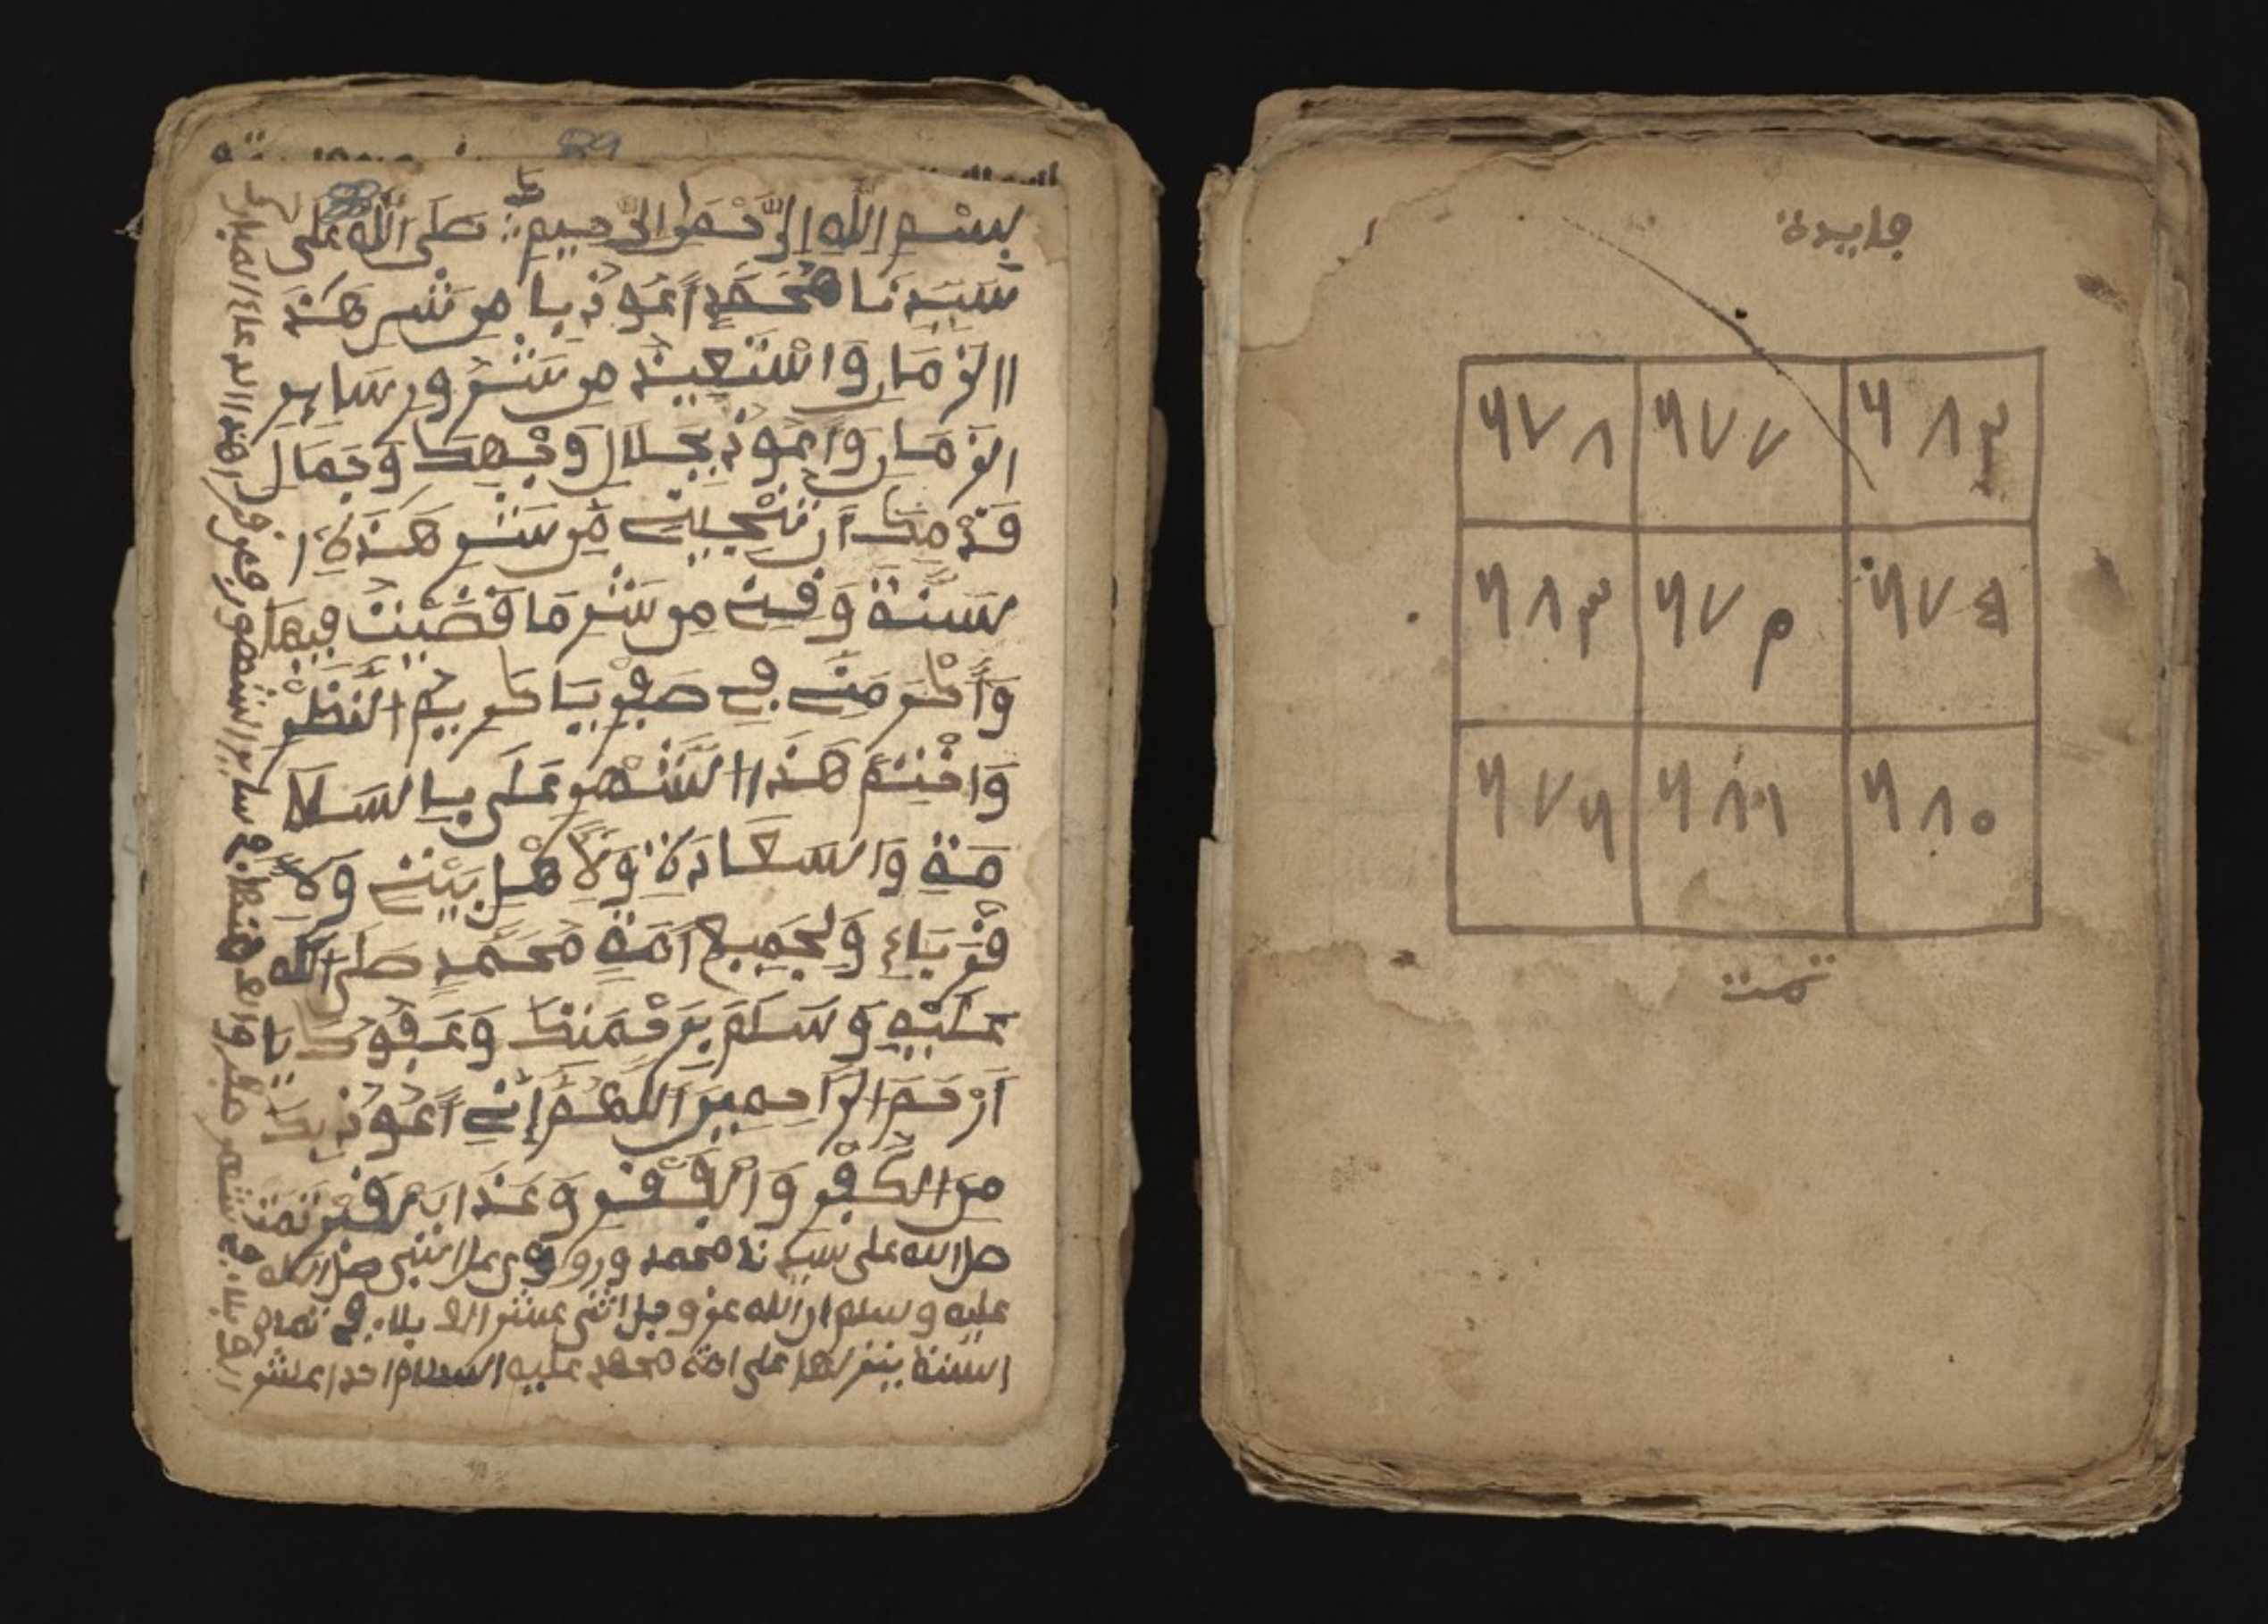 بِسْمِ اللَّهِ الرَّحْمَنِ الرَّحِيمِ صَلَى اللَّهُ عَلَى
سَيِّدِنَا مُحَمَّدٍ أَعُوذُ بِا مِن شَرِّ هَذَ
ا الزَّمَانِ وَاسْتَعِيذُ مِن شُرُورِ سَايِرِ
الزَّمَانِ وَأَعُوذُ بِجَلَالِ وَجْهِكَ وَجَمَالِ
قَدْمِكَ أَن تُنْجِيَنِي مِن شَرِّ هَذِهِ ا
سَنَةِ وَقِنِي مِن شَرِّ مَا قَضَيْتَ فِيهَا
وَأَكْرَمَنِي فِي صَفَرِ يَا كَرِيمُ النَّظَرِ
وَاخْتِمْ هَذَا الشَّهْرِ عَلَى بِالسَلَا
مَةِ وَالسَعَادَةِ وَلِأَهْلِ بَيْتِي وَلِأَ
قْرِبَاءِ وَلِجَمِيعِ أُمَةِ مُحَمَّدٍ صَلَى اللَّه
عَلَيْهِ وَسَلَمَ بِرَحْمَتِكَ وَعَفْوِكَ يَا
أَرْحَمَ الرَّاحِمِينَ اللَّهُمَّ إِنِّي أَعُوذُ بِكَ
مِنَ الْكُفْرِ وَالْفَقْرِ وَعَذَابِ الْقَبْرِ تَمَتْ
صل الله على سيدنا محمد وروي عن النبي صل الله
عليه وسلم ان الله عز وجل اثنى عشر الاف بلاء في تمام
السنة ينزلها على امة محمد عليه السلام احد اعشر
الاف بلاء في شهر صفر والف منها في ساير الشهور فمن قرا هذا الدعاء المبارك
89
فايدة
٦٧٨ ٦٧٧ ٦٨٢
٦٨٣ ٦٧٩ ٦٧٥
٦٧٦ ٦٨١ ٦٨٠
تمت